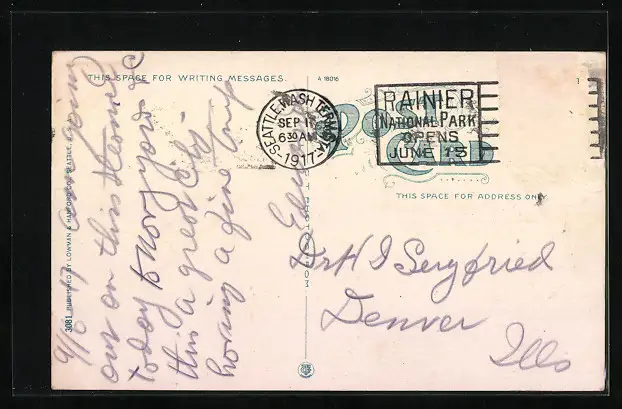 THIS SPACE FOR WRITING MESSAGES.
A 18016
SEATTLE, WASH. TERM. STA.
SEP 1
6 30 AM
1917
RAINIER
NATIONAL PARK
OPENS
JUNE 15
POST CARD
THIS SPACE FOR ADDRESS ONLY.
3081 PUBLISHED BY LOWMAN & HANFORD CO. SEATTLE
going
out on this steamer
today to
this a great city
having a fine trip
Edward
Dr H I Seryfried
Denver
Ills